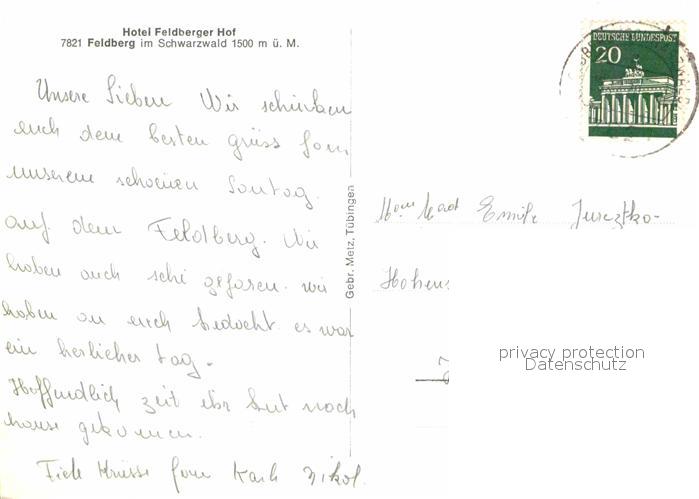 Hotel Feldberger Hof
7821 Feldberg im Schwarzwald 1500 m ü. M.
DEUTSCHE BUNDESPOST
20
Unsere Lieben Wir schicken
euch dem besten grüss fom
unserem schoenen Sontag
auf dem Feldberg. Wir
haben auch schi gefaren. wir
haben an euch bedacht es war
ein herlicher tag.
Hoffendlich zeit ihr Gut nach
hause gekommen.
Fiele Krüsse fom Karli
Gebr. Metz, Tübingen
Emile
Hohens
privacy protection
Datenschutz